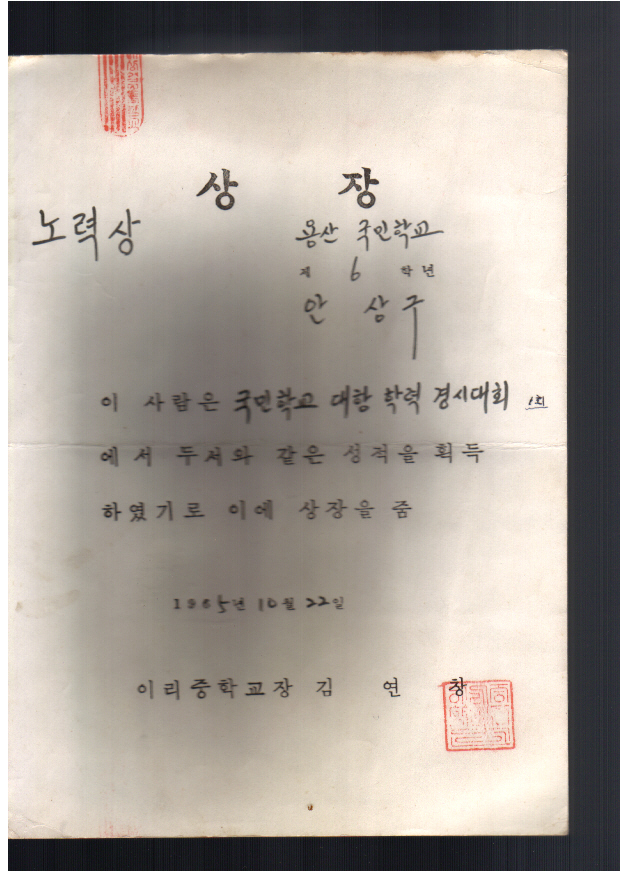 상 장
노력상
용산 국민학교
제 6 학년
안 상구
이 사람은 국민학교 대항 학력 경시대회
에서 두서와 같은 성적을 획득
하였기로 이에 상장을 줌
1965년 10월 22일
이리중학교장 김 연 창